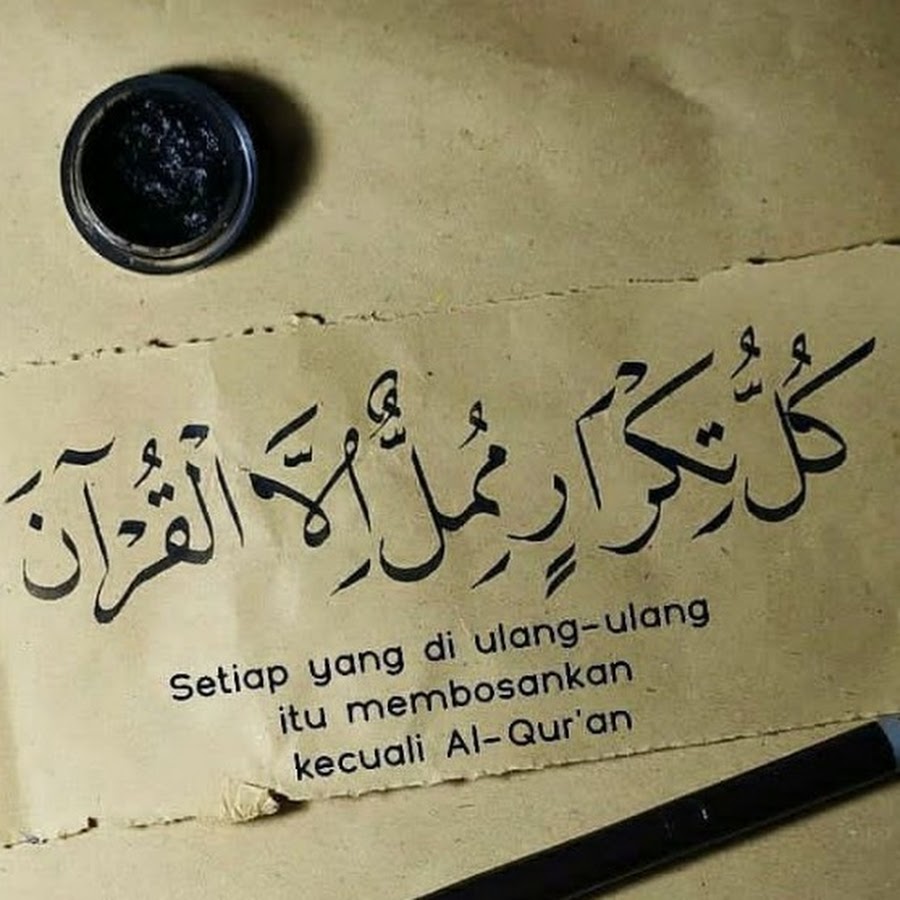 كُلُّ تِكرَارٍ مُمِلٌّ إِلَّا الْقُرْآنَ
Setiap yang di ulang-ulang
itu membosankan
kecuali Al-Qur'an